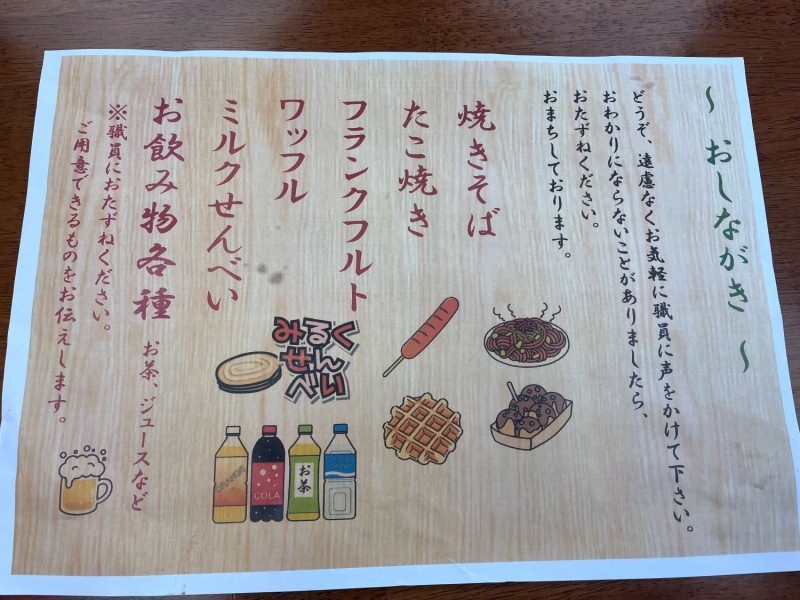 ～ おしながき ～
どうぞ、遠慮なくお気軽に職員に声をかけて下さい。
おわかりにならないことがありましたら、
おたずねください。
おまちしております。
焼きそば
たこ焼き
フランクフルト
ワッフル
ミルクせんべい
お飲み物各種 お茶、ジュースなど
※職員におたずねください。
ご用意できるものをお伝えします。
みるく
せんべい
ORANGE
COLA
お茶